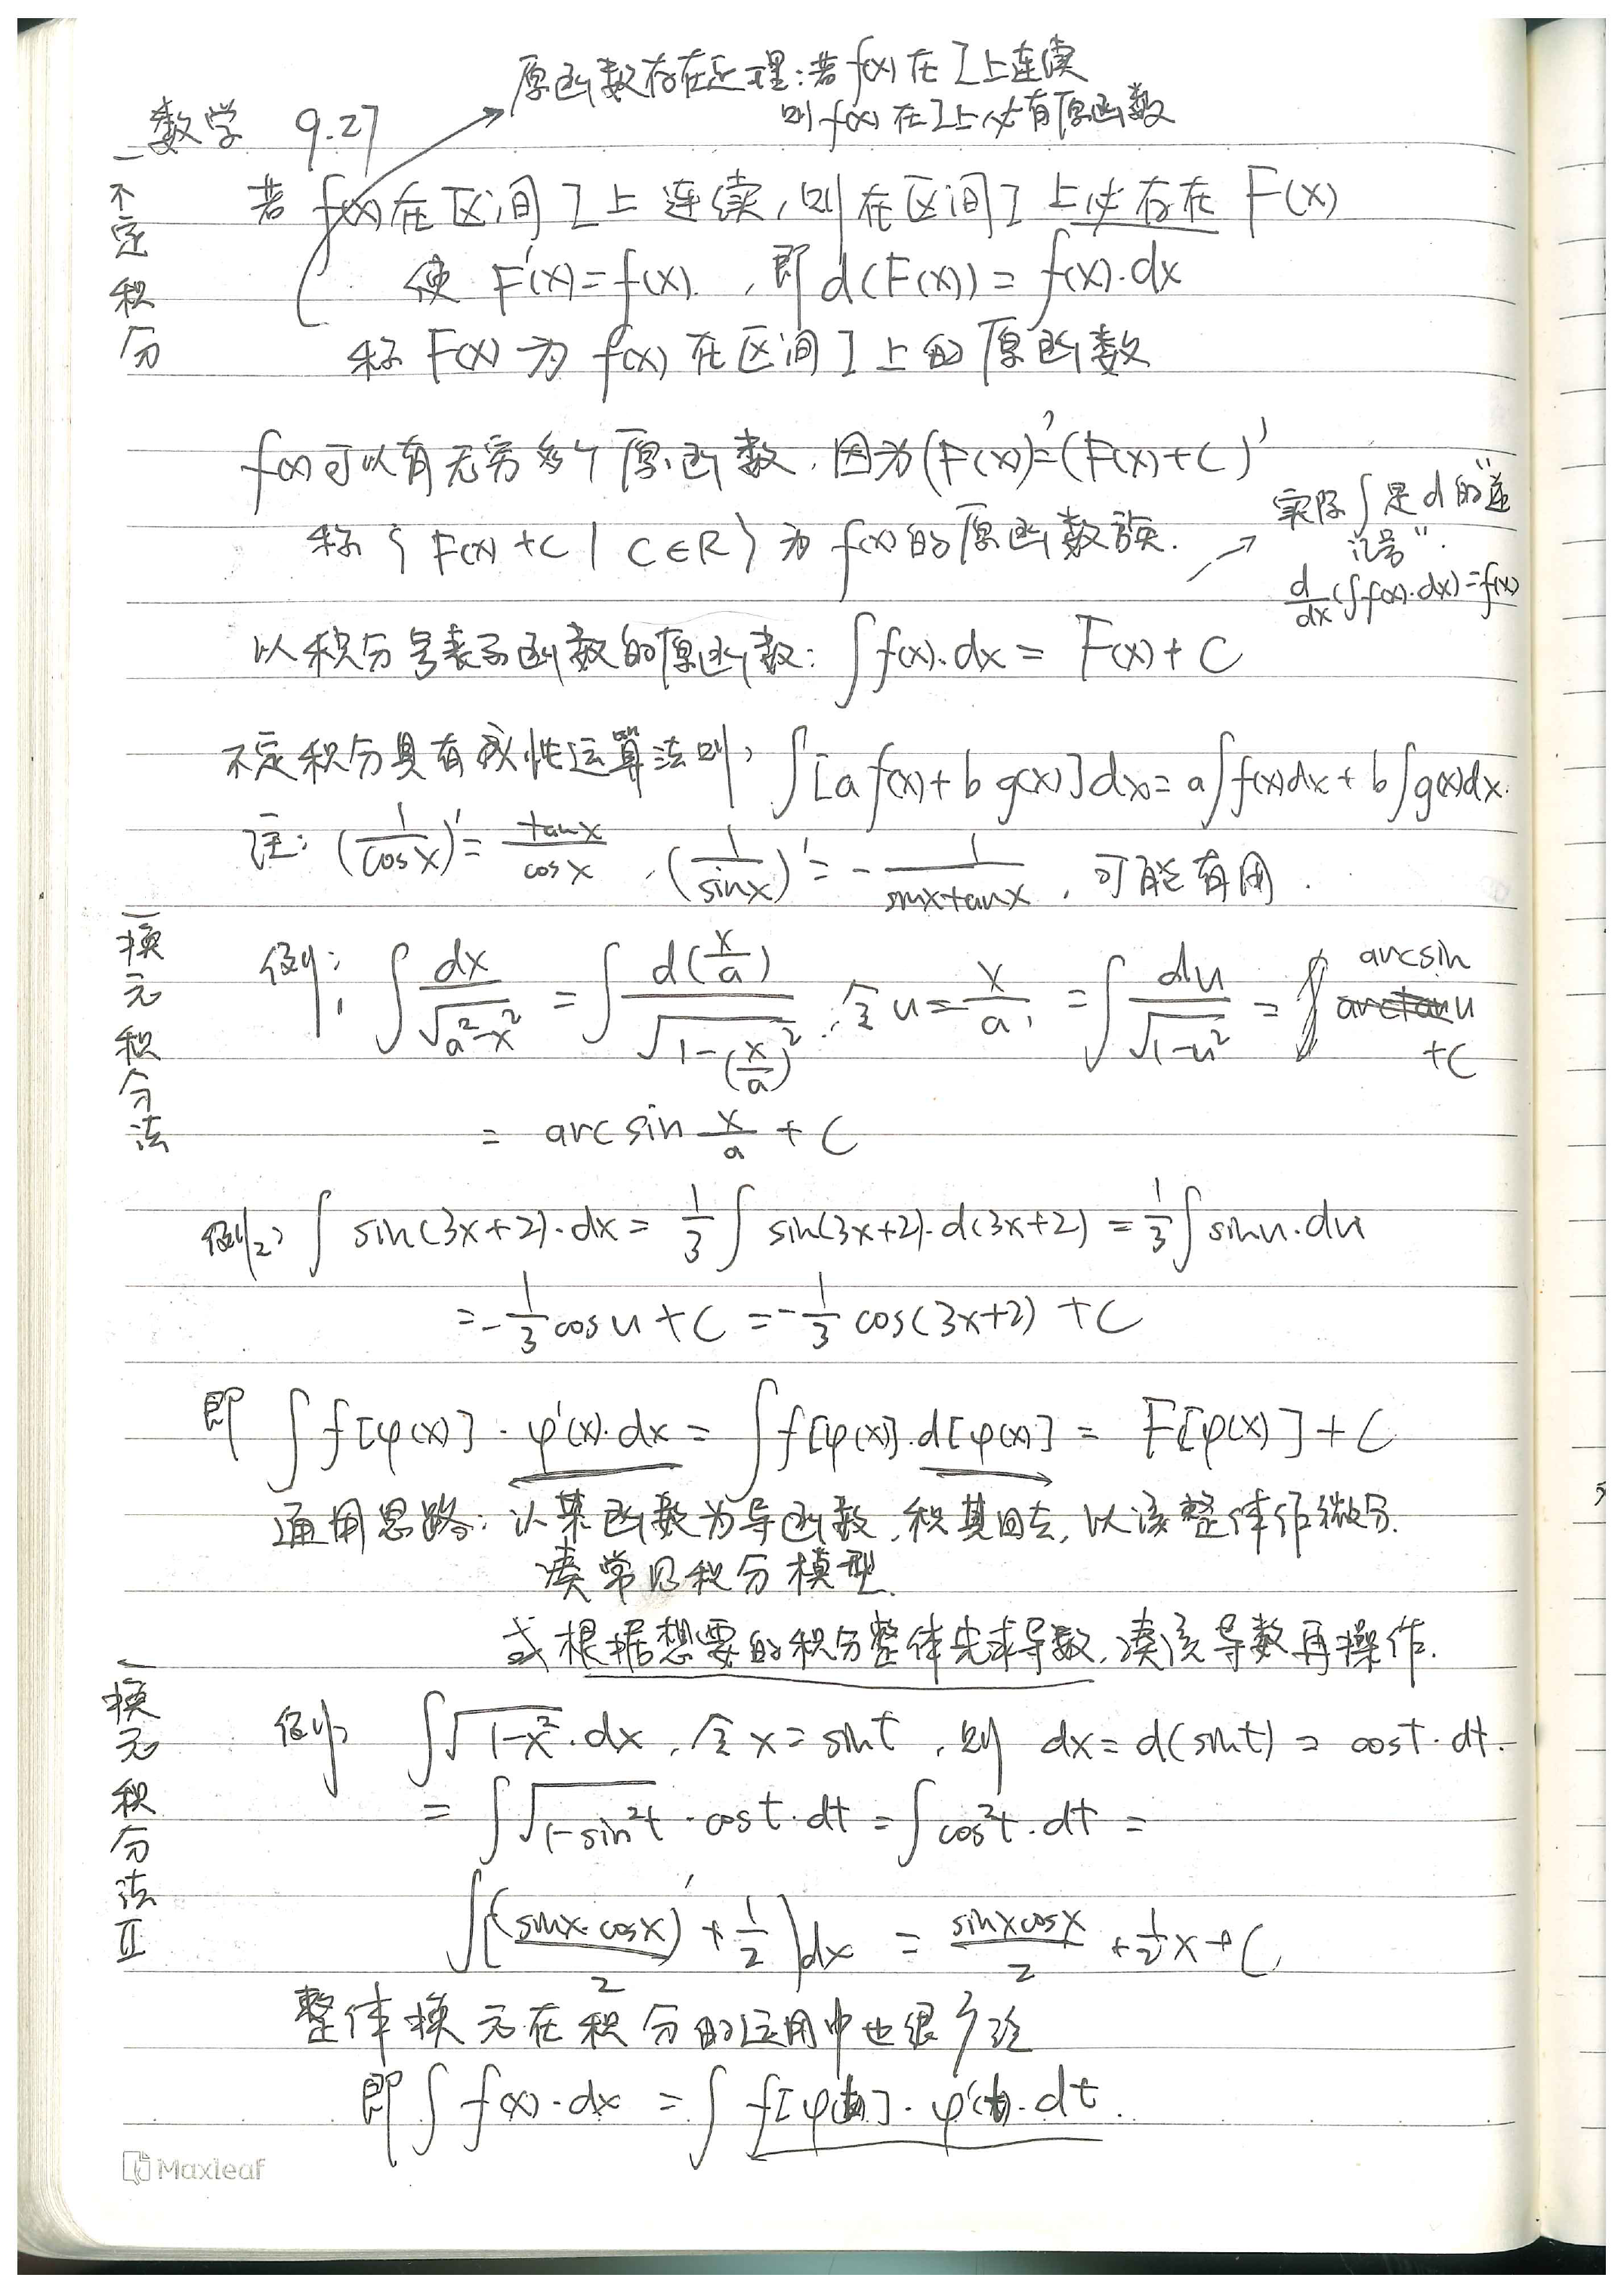 原函数存在定理:若 f(x) 在 I 上连续
则 f(x) 在 I 上必有原函数
数学 9.27
不定积分
若 f(x) 在区间 I 上连续,则在区间 I 上必存在 F(x)
使 F'(x)=f(x). ,即 d(F(x)) = f(x)·dx
称 F(x) 为 f(x) 在区间 I 上的原函数
f(x) 可以有无穷多个原函数,因为 (F(x))'=(F(x)+C)'
称 { F(x)+C | C∈R } 为 f(x) 的原函数族.
实际 ∫ 是 d 的“逆
记号”.
d/dx (∫f(x)·dx)=f(x)
以积分号表示函数的原函数: ∫f(x)·dx = F(x)+C
不定积分具有线性运算法则, ∫[a f(x)+b g(x)]dx = a∫f(x)dx + b∫g(x)dx.
注: (1/cosx)'= tanx/cosx , (1/sinx)'= - 1/(sinxtanx) , 可能有用.
换元积分法
例1: ∫ dx/√(a²-x²) = ∫ d(x/a)/√(1-(x/a)²) , 令 u = x/a , = ∫ du/√(1-u²) = arcsin u +C
= arcsin x/a + C
例2, ∫ sin(3x+2)·dx = 1/3 ∫ sin(3x+2)·d(3x+2) = 1/3 ∫ sinu·du
= -1/3 cosu + C = -1/3 cos(3x+2) + C
即 ∫ f[φ(x)]·φ'(x)·dx = ∫ f[φ(x)]·d[φ(x)] = F[φ(x)] + C
通用思路: 以某函数为导函数,积其回去,以该整体作微分.
凑常见积分模型.
或根据想要的积分整体先求导数,凑该导数再操作.
换元积分法II
例, ∫√(1-x²)·dx , 令 x = sint , 则 dx = d(sint) = cost·dt.
= ∫√(1-sin²t)·cost·dt = ∫cos²t·dt =
∫[(sinx·cosx)'/2 + 1/2]dx = sinxcosx/2 + 1/2 x + C
整体换元在积分的运用中也很广泛
即 ∫ f(x)·dx = ∫ f[φ(t)]·φ'(t)·dt.
Maxleaf